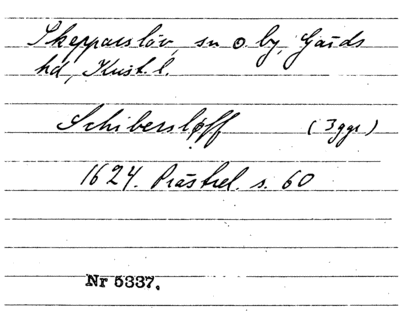 Skepparslöv, sn o by, Gärds
hd, Krist. l.
Schibersløff (3 ggr)
1624. Prästrel. s. 60
Nr 5337.